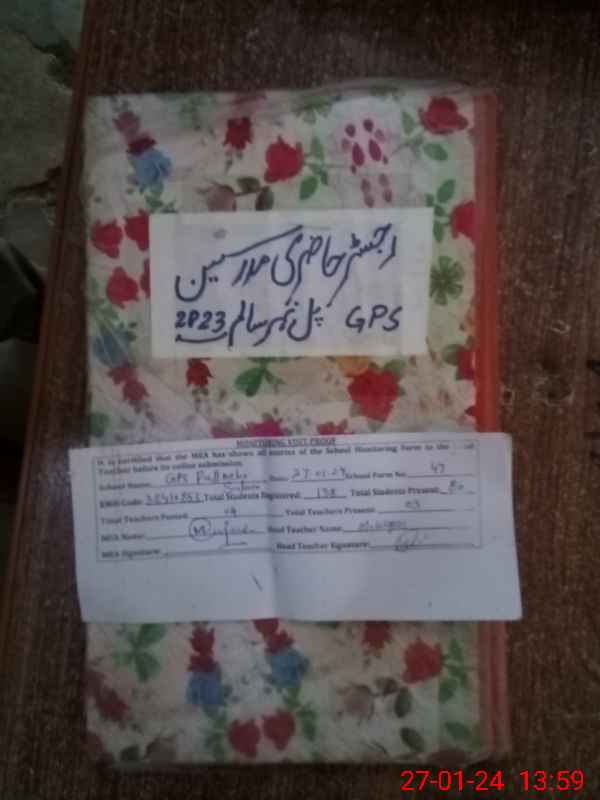 رجسٹر حاضری مدرسین
GPS پل نہر سالم 2023
MONITORING VISIT PROOF
It is certified that the MEA has shown all entries of the School Monitoring Form to the Head
Teacher before its online submission.
School Name: GPS Date: 27-01-24 School Form No. 47
EMIS Code: Total Students Registered: 138 Total Students Present: 80
Total Teachers Posted: 04 Total Teachers Present: 03
MEA Name: Head Teacher Name:
MEA Signature: Head Teacher Signature:
27-01-24 13:59